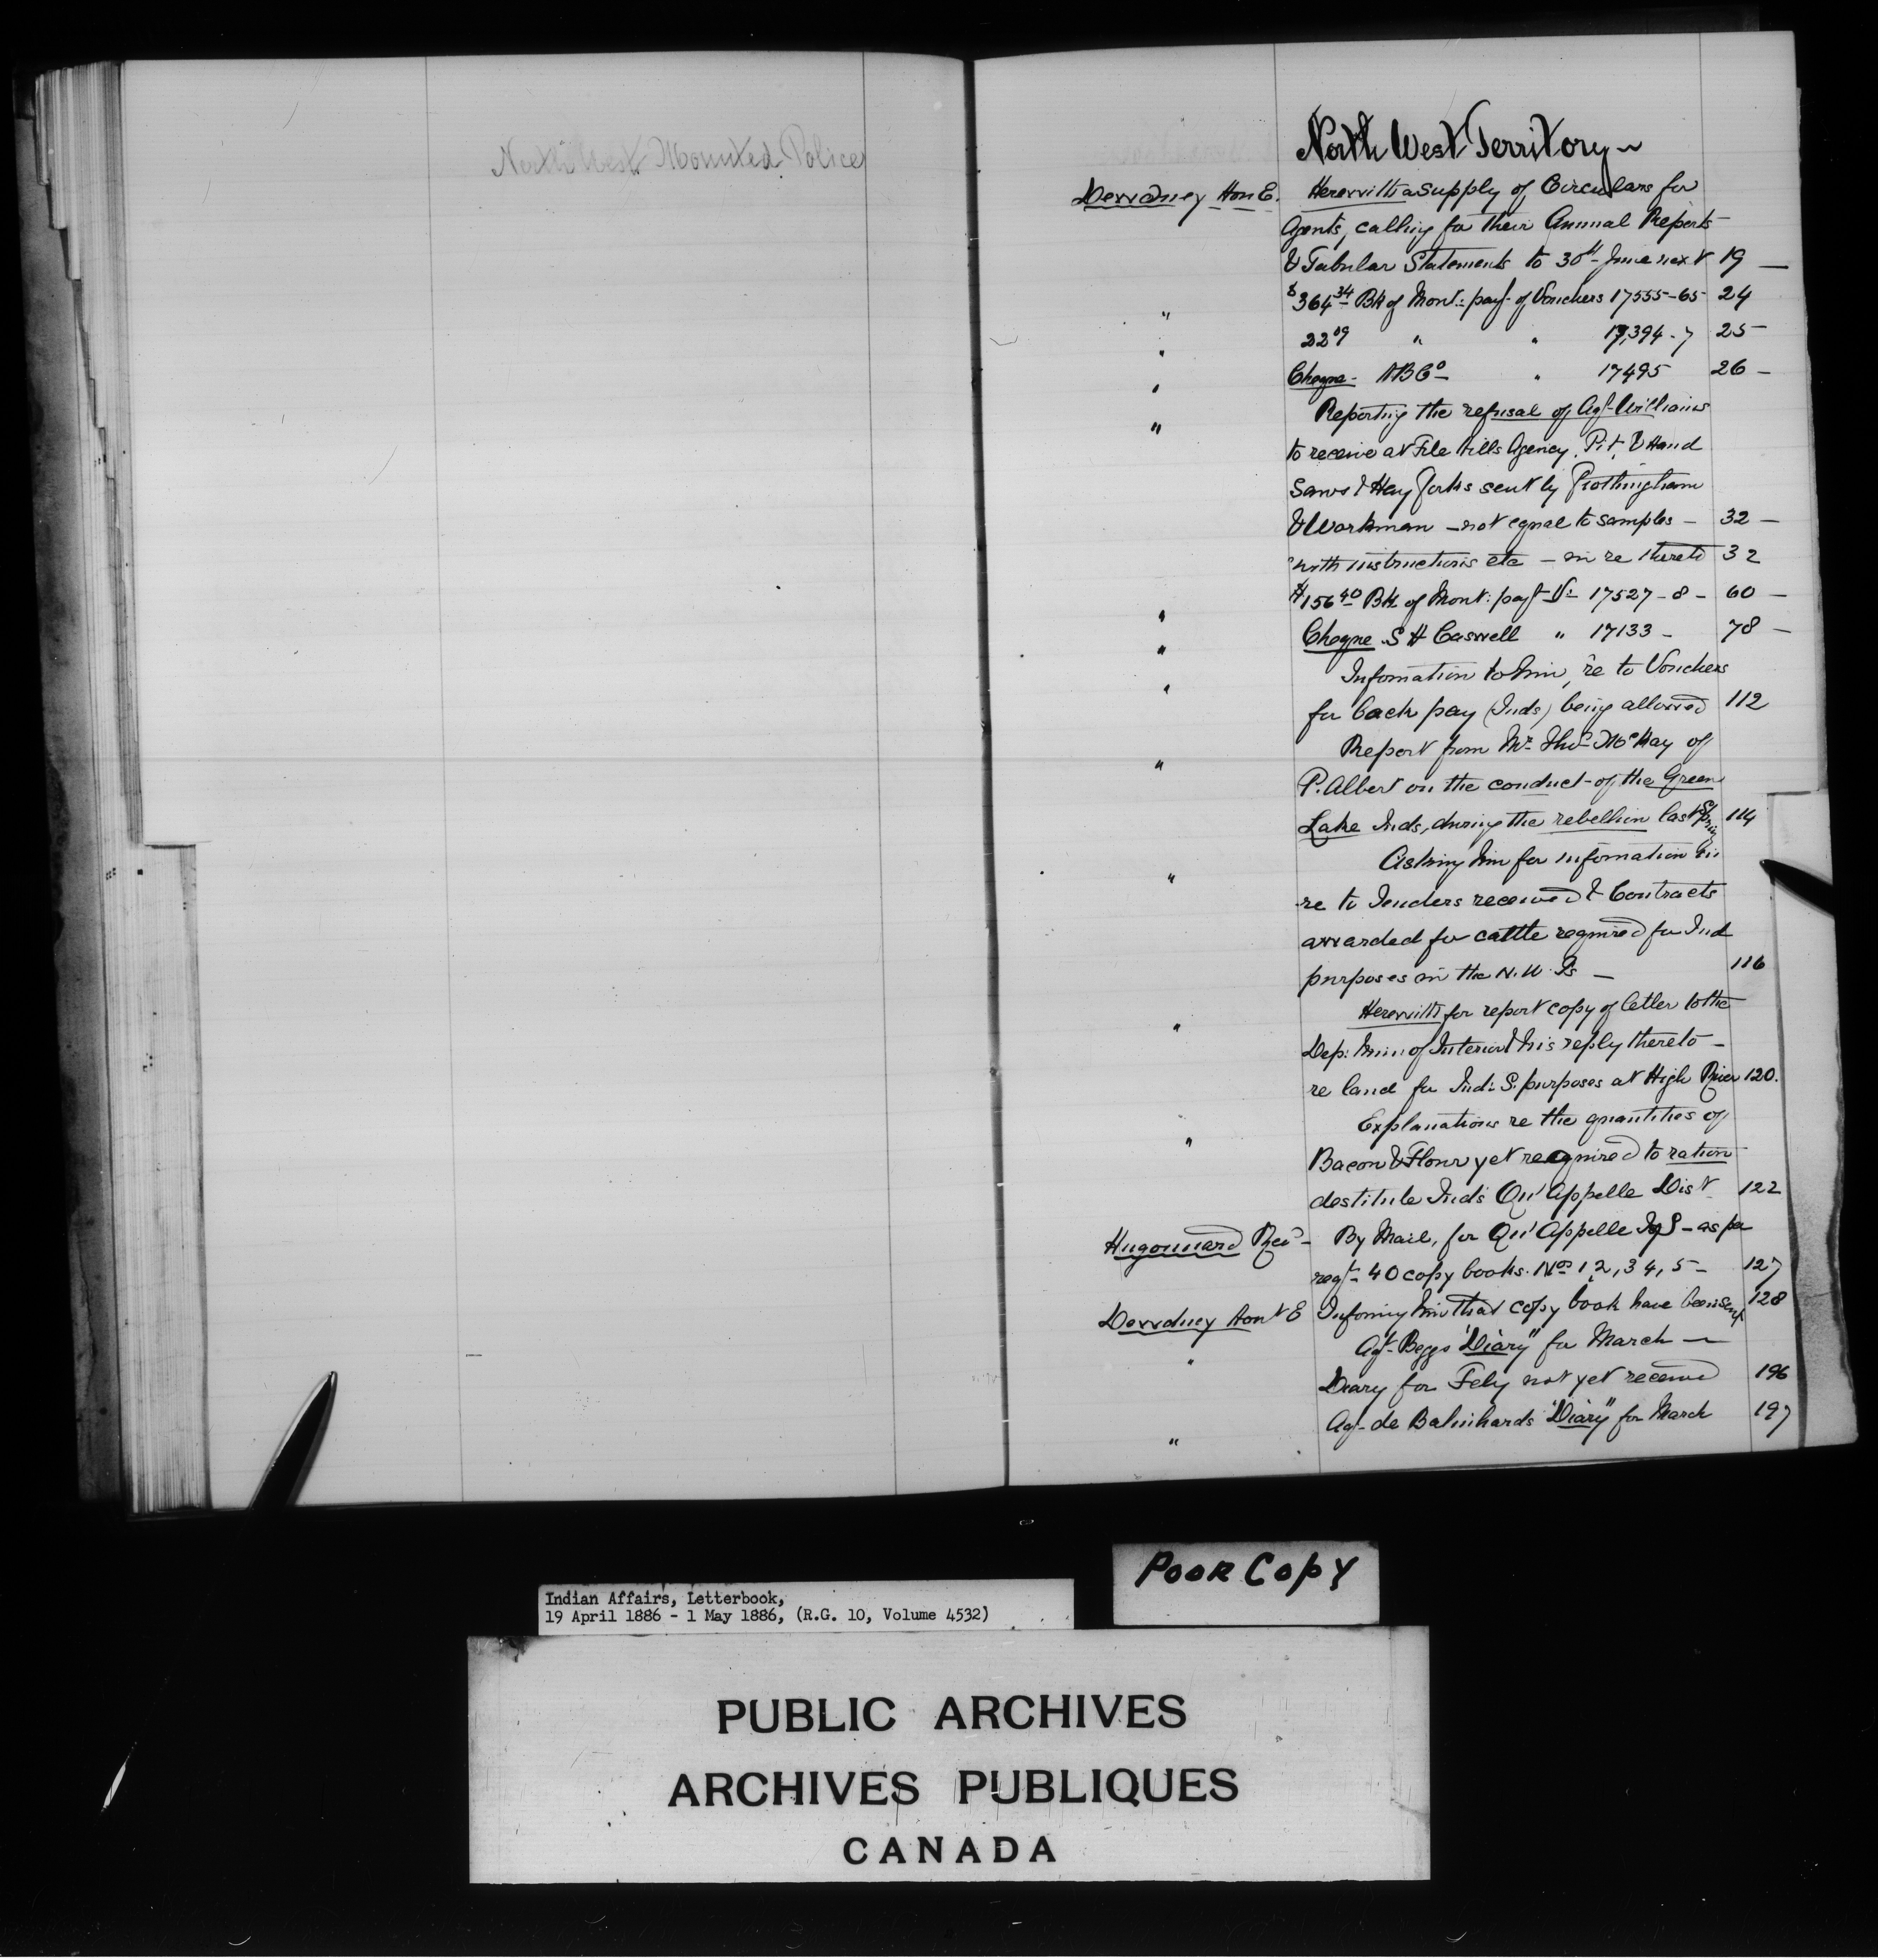 North West Mounted Police
North West Territory
Dewdney Hon E. Herewith a supply of Circulars for
Agents, calling for their Annual Reports
& Tabular Statements to 30th June next 19 —
" $364 34 Bk of Mont: payt of Vouchers 17555-65 24
" 22 09 " " 17,394-7 25 —
" Cheque - HB Co — " 17495 26 —
" Reporting the refusal of Agt Williams
to receive at File Hills Agency, Pit, & Hand
Saws & Hay forks sent by Frothingham
& Workman — not equal to samples — 32 —
with instructions etc — in re thereto 32
" $156 40 Bk of Mont: payt V: 17527-8 — 60 —
" Cheque S H Caswell " 17133 — 78 —
" Information to him, re to Vouchers
for back pay (Inds) being allowed 112
" Report from Mr Thos McKay of
P. Albert on the conduct of the Green
Lake Inds, during the rebellion last Spring 114
" Asking him for information in
re to Tenders received & Contracts
awarded for cattle required for Ind
purposes in the N.W.Ts — 116
" Herewith for report copy of letter to the
Dep: Min: of Interior & his reply thereto —
re land for Ind: S. purposes at High River 120.
" Explanations re the quantities of
Bacon & Flour yet required to ration
destitute Inds Qu'Appelle Dist 122
Hugonnard Revd — By Mail, for Qu'Appelle — as per
reqt — 40 copy books Nos 1, 2, 3 4, 5 — 127
Dewdney Hon E Informing him that copy book have been sent 128
" Agt Beggs "Diary" for March —
Diary for Feby not yet received 196
" Agt de Balinhards "Diary" for March 197
Poor Copy
Indian Affairs, Letterbook,
19 April 1886 - 1 May 1886, (R.G. 10, Volume 4532)
PUBLIC ARCHIVES
ARCHIVES PUBLIQUES
CANADA